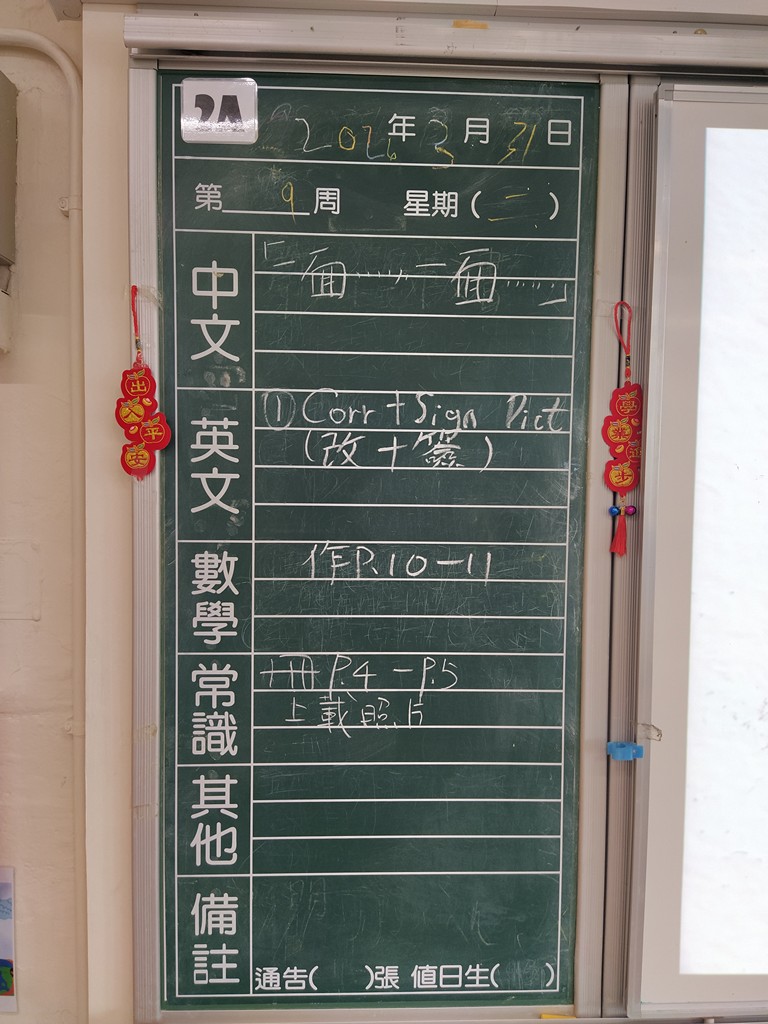 2A
2026年3月31日
第9周 星期(二)
中文
「一面……一面……」
英文
① Corr + Sign Dict
(改+簽)
數學
作P.10-11
常識
冊P.4-P.5
上載照片
其他
備註
通告( )張 值日生( )
出
入
平
安
學
業
進
步